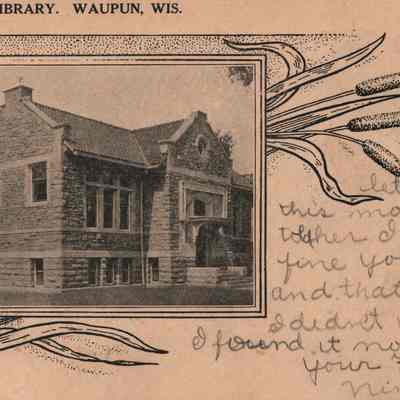 IBRARY. WAUPUN, WIS.
let
this mo
to her I
fine yo
and that
I didn't
I found it no
your
Nin